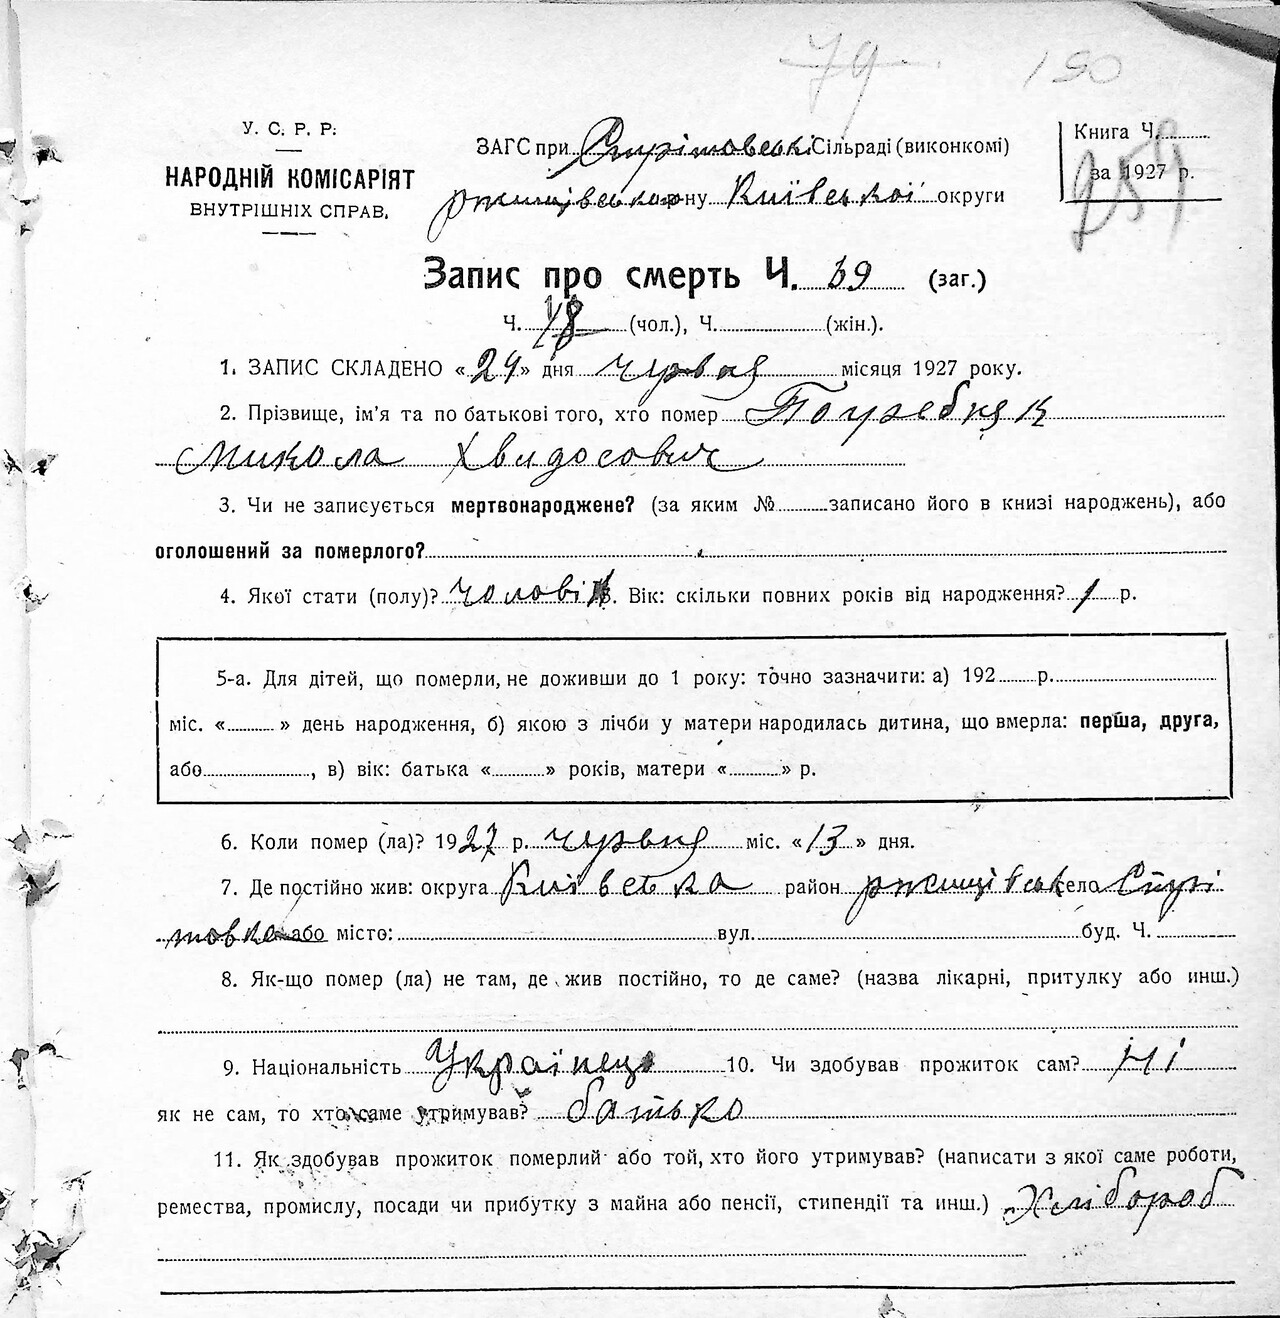 79 150
У. С. Р. Р.
НАРОДНІЙ КОМІСАРІЯТ
ВНУТРІШНІХ СПРАВ.
ЗАГС при Стрітовські Сільраді (виконкомі)
ржищівському Київської округи
Книга Ч.
за 1927 р.
259
Запис про смерть Ч. 69 (заг.)
Ч. 18 (чол.), Ч. (жін.).
1. ЗАПИС СКЛАДЕНО «24» дня червня місяця 1927 року.
2. Прізвище, ім'я та по батькові того, хто помер Погребняк
Микола Хвидосович
3. Чи не записується мертвонароджене? (за яким № записано його в книзі народжень), або
оголошений за померлого?
4. Якої стати (полу)? чоловік. Вік: скільки повних років від народження? 1 р.
5-а. Для дітей, що померли, не доживши до 1 року: точно зазначити: а) 192 р.
міс. « » день народження, б) якою з лічби у матери народилась дитина, що вмерла: перша, друга,
або , в) вік: батька « » років, матери « » р.
6. Коли помер (ла)? 1927 р. червня міс. «13» дня.
7. Де постійно жив: округа Київська район ржищівськ село Стрі
товка або місто: вул. буд. Ч.
8. Як-що помер (ла) не там, де жив постійно, то де саме? (назва лікарні, притулку або инш.)
9. Національність Українець 10. Чи здобував прожиток сам? Ні
як не сам, то хто саме утримував? батько
11. Як здобував прожиток померлий або той, хто його утримував? (написати з якої саме роботи,
ремества, промислу, посади чи прибутку з майна або пенсії, стипендії та инш.) Хлібороб